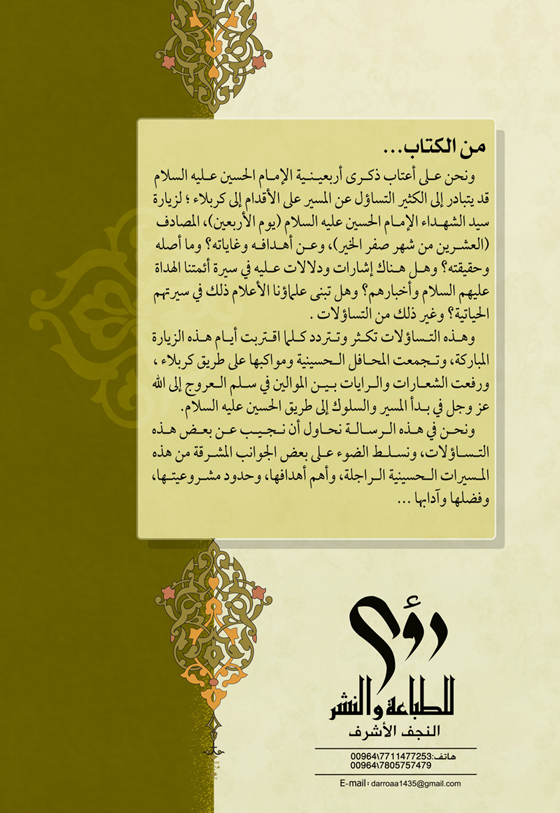 من الكتاب...
ونحن على أعتاب ذكرى أربعينية الإمام الحسين عليه السلام
قد يتبادر إلى الكثير التساؤل عن المسير على الأقدام إلى كربلاء ؛ لزيارة
سيد الشهداء الإمام الحسين عليه السلام (يوم الأربعين)، المصادف
(العشرين من شهر صفر الخير)، وعن أهدافه وغاياته؟ وما أصله
وحقيقته؟ وهل هناك إشارات ودلالات عليه في سيرة أئمتنا الهداة
عليهم السلام وأخبارهم؟ وهل تبنى علماؤنا الأعلام ذلك في سيرتهم
الحياتية؟ وغير ذلك من التساؤلات .
وهذه التساؤلات تكثر وتتردد كلما اقتربت أيام هذه الزيارة
المباركة، وتجمعت المحافل الحسينية ومواكبها على طريق كربلاء ،
ورفعت الشعارات والرايات بين الموالين في سلم العروج إلى الله
عز وجل في بدأ المسير والسلوك إلى طريق الحسين عليه السلام.
ونحن في هذه الرسالة نحاول أن نجيب عن بعض هذه
التساؤلات، ونسلط الضوء على بعض الجوانب المشرقة من هذه
المسيرات الحسينية الراجلة، وأهم أهدافها، وحدود مشروعيتها،
وفضلها وآدابها ...
رؤى
للطباعة والنشر
النجف الأشرف
هاتف:00964\7711477253
00964\7805757479
E-mail: darroaa1435@gmail.com